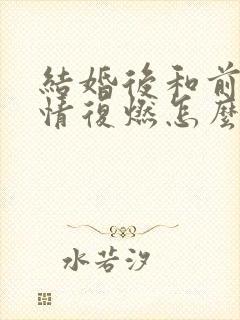 結婚後和前
情復燃怎麼
水若汐